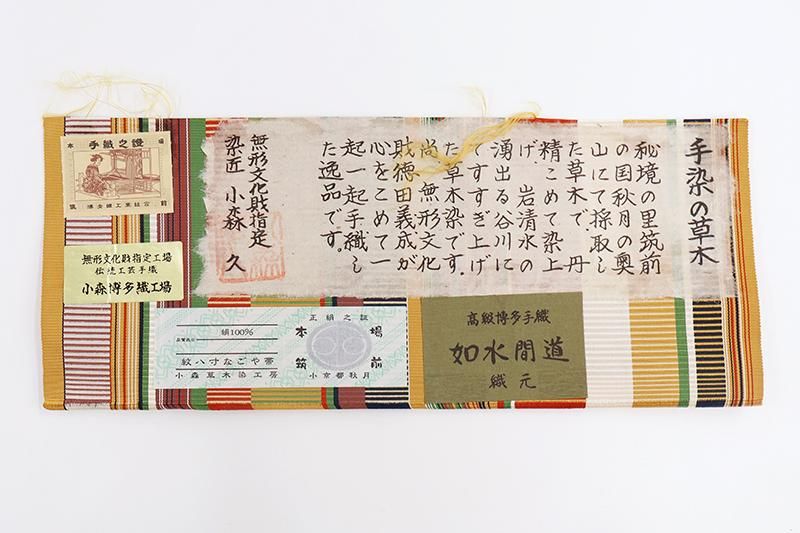 手染の草木
秘境の里筑前
の国秋月の奥
山にて採取し
た草木で、丹
精こめて染上
げ、岩清水の
湧出る谷川に
てすすぎ上げ
た草木染です。
尚、無形文化
財徳田義成が
心をこめて一
起一起手織し
た逸品です。
無形文化財指定
染匠 小森 久
本場
手織之證
筑前
博多織工業組合
無形文化財指定工場
伝統工芸手織
小森博多織工場
正絹之証
絹100%
品質表示
本場
筑前
紋八寸なごや帯
小森草木染工房
小京都秋月
高級博多手織
如水間道
織元